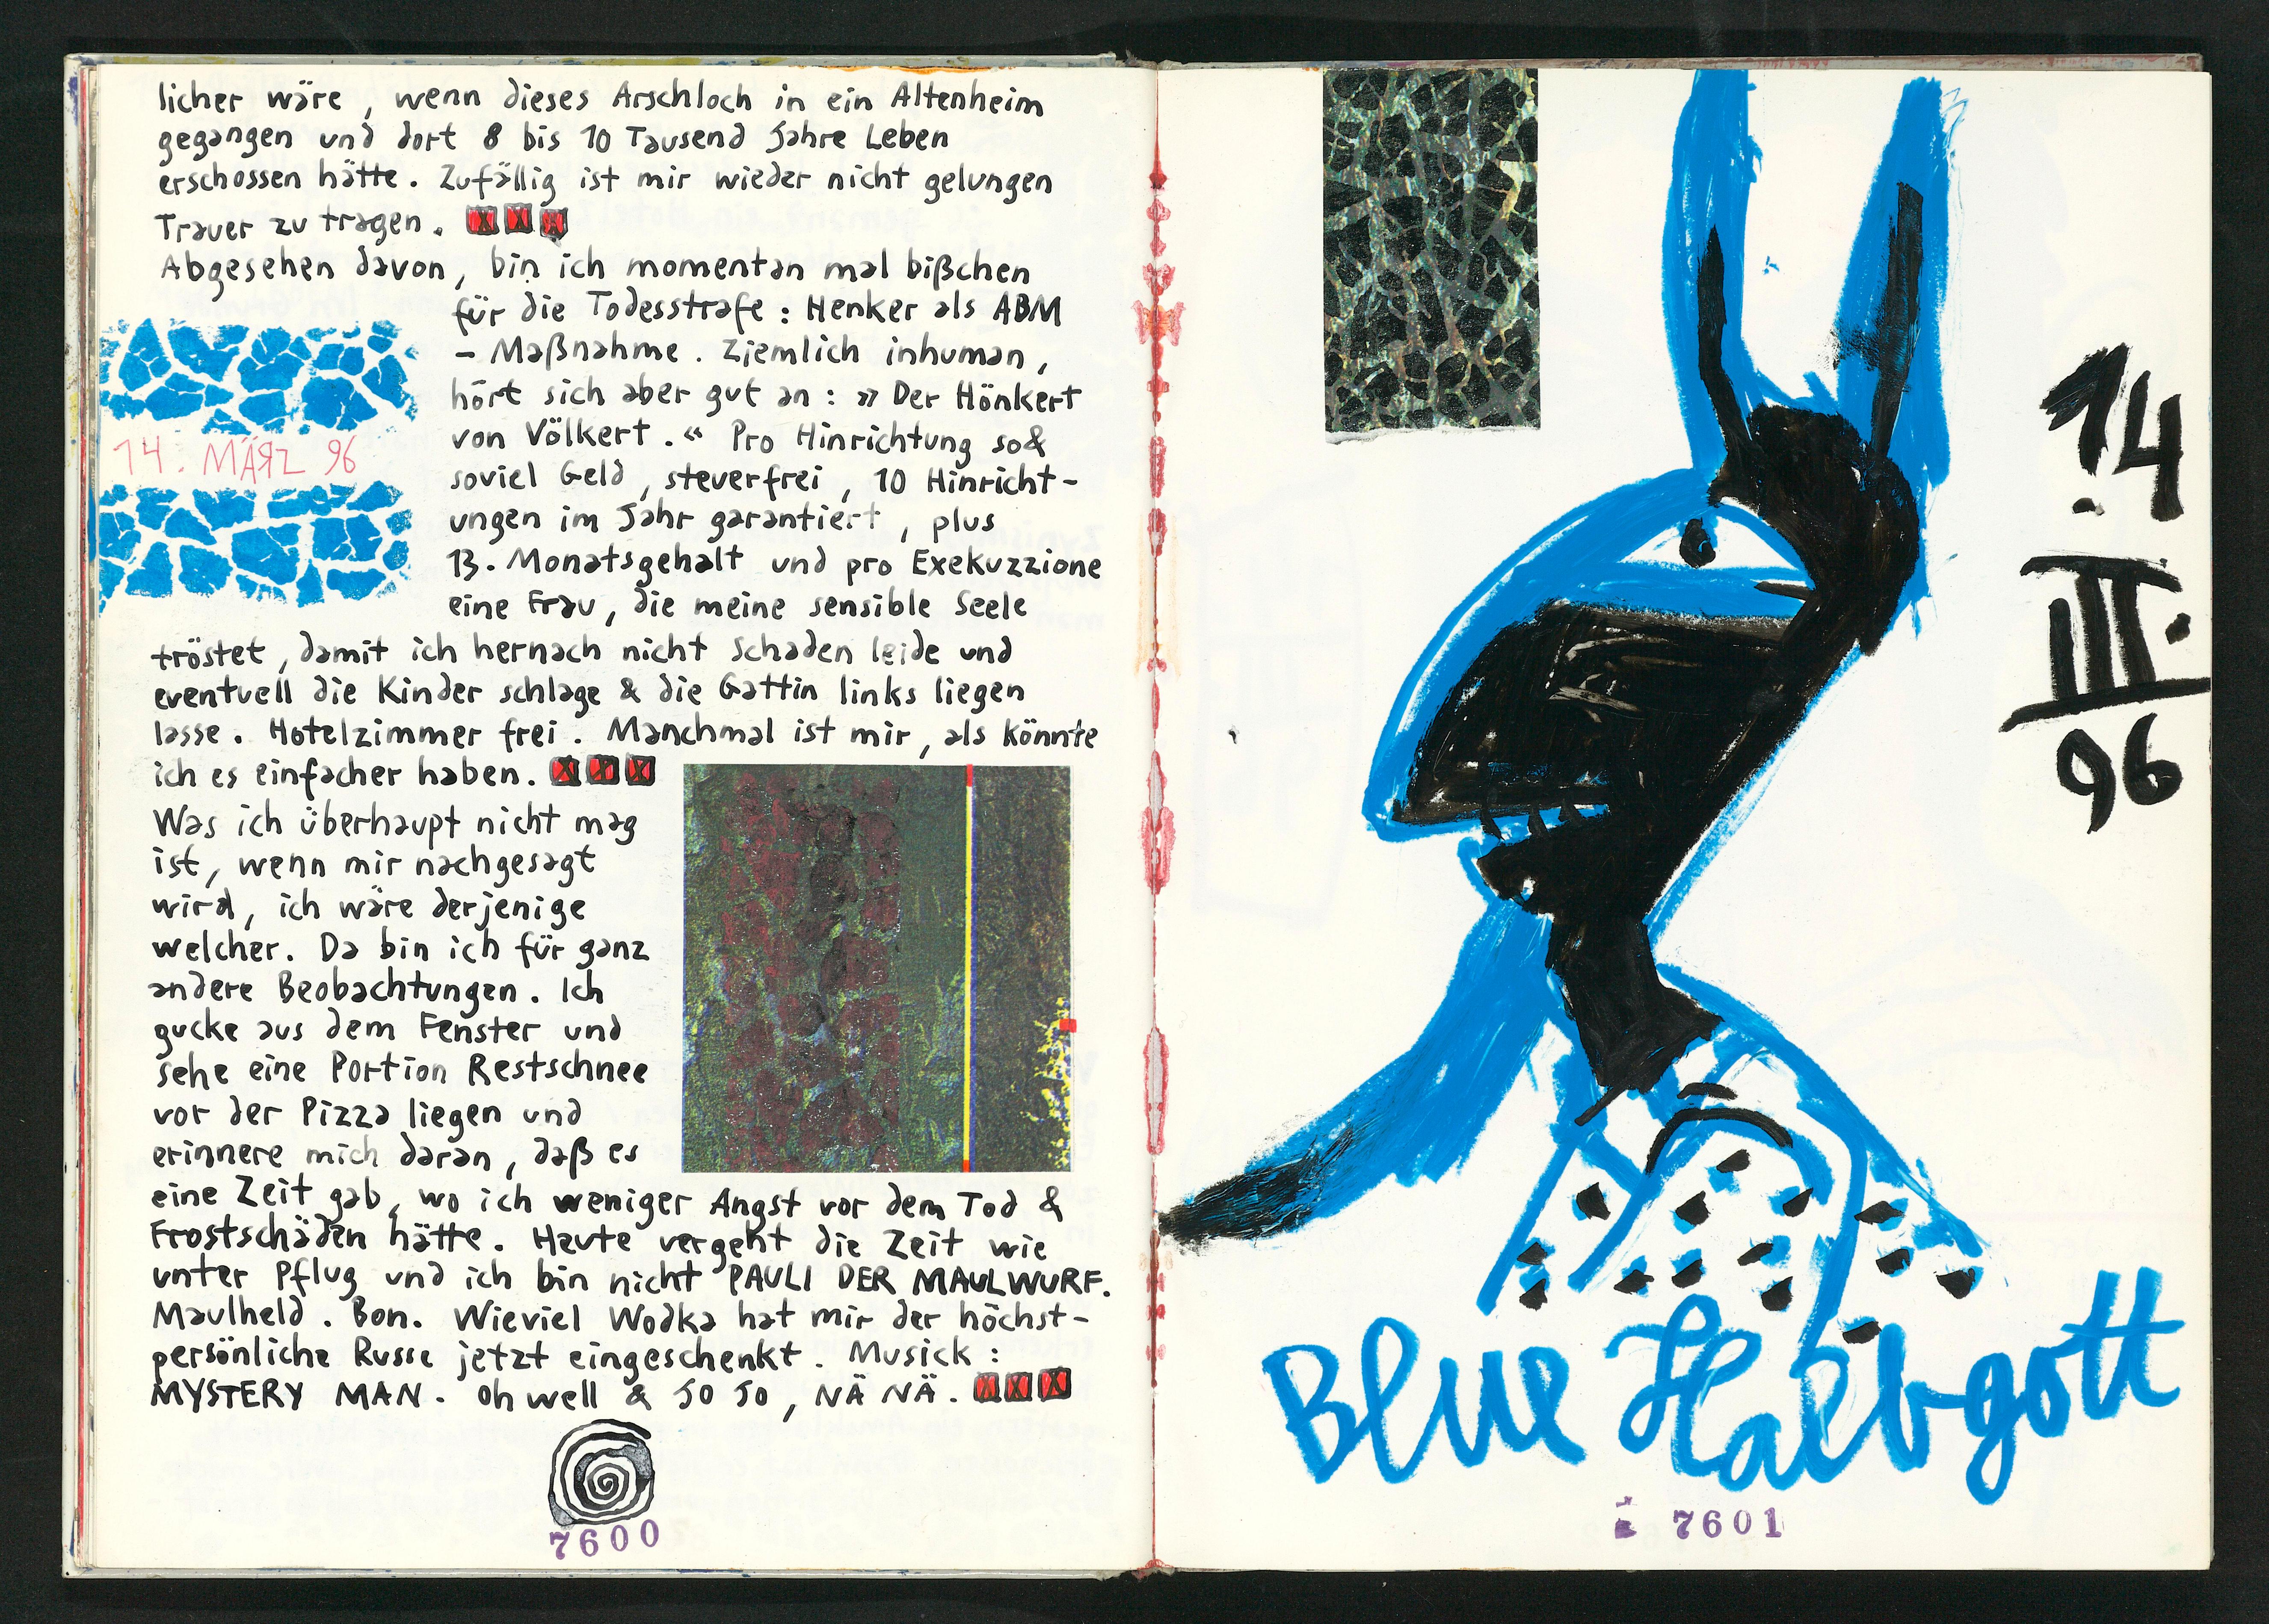 licher wäre, wenn dieses Arschloch in ein Altenheim
gegangen und dort 8 bis 10 Tausend Jahre Leben
erschossen hätte. Zufällig ist mir wieder nicht gelungen
Trauer zu tragen.
Abgesehen davon, bin ich momentan mal bißchen
für die Todesstrafe: Henker als ABM
- Maßnahme. Ziemlich inhuman,
hört sich aber gut an: »Der Hönkert
von Völkert.« Pro Hinrichtung so&
soviel Geld, steuerfrei, 10 Hinricht-
ungen im Jahr garantiert, plus
13. Monatsgehalt und pro Exekuzzione
eine Frau, die meine sensible Seele
14. MÄRZ 96
tröstet, damit ich hernach nicht Schaden leide und
eventuell die Kinder schlage & die Gattin links liegen
lasse. Hotelzimmer frei. Manchmal ist mir, als könnte
ich es einfacher haben.
Was ich überhaupt nicht mag
ist, wenn mir nachgesagt
wird, ich wäre derjenige
welcher. Da bin ich für ganz
andere Beobachtungen. Ich
gucke aus dem Fenster und
sehe eine Portion Restschnee
vor der Pizza liegen und
erinnere mich daran, daß es
eine Zeit gab, wo ich weniger Angst vor dem Tod &
Frostschäden hätte. Heute vergeht die Zeit wie
unter Pflug und ich bin nicht PAULI DER MAULWURF.
Maulheld. Bon. Wieviel Wodka hat mir der höchst-
persönliche Russe jetzt eingeschenkt. Musick:
MYSTERY MAN. Oh well & JO JO, NÄ NÄ.
7600
14.
III.
96
Blue Halbgott
7601